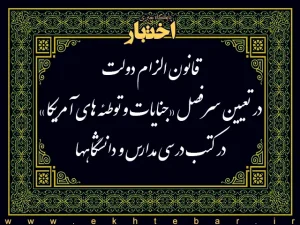 اختبار
قانون الزام دولت
در تعیین سرفصل «جنایات و توطئه های آمریکا»
در کتب درسی مدارس و دانشگاهها
www.ekhtebar.ir